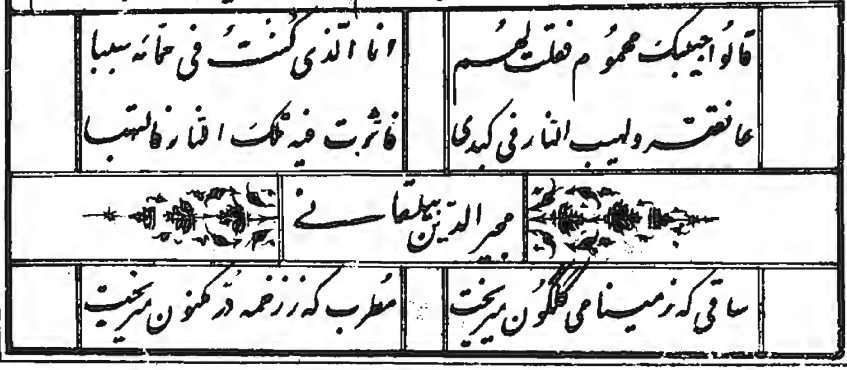 قالوا حبیبک محموم فقلت لهم
انا الذی کنت فی حمائه سببا
عانقته ولهیب النار فی کبدی
فاثرت فیه تلک النار فالتهبا
مجیر الدین بیلقانی
ساقی که ز مینا می گلگون میریخت
مطرب که ز زخمه در مکنون میریخت